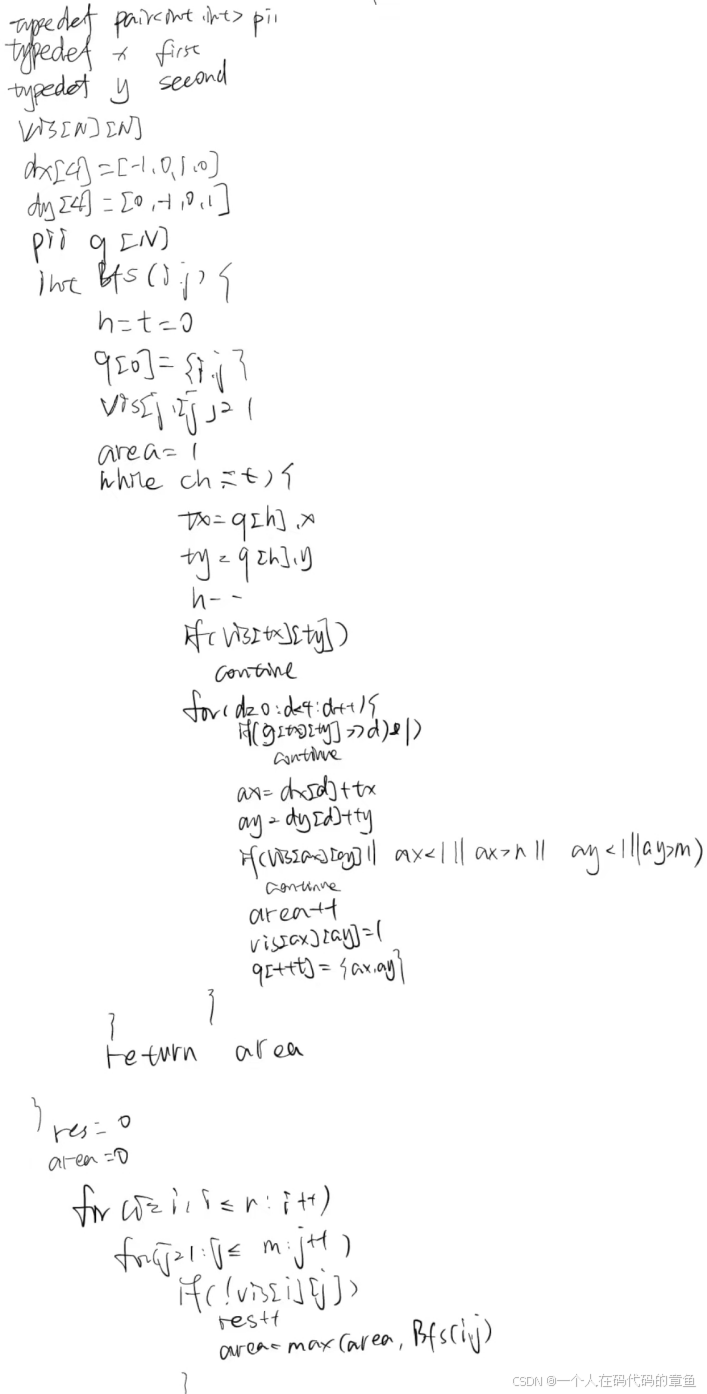 typedef pair<int,int> pii
typedef x first
typedef y second
vis[N][N]
dx[4]=[-1,0,1,0]
dy[4]=[0,-1,0,1]
pii q[N]
int Bfs(i,j){
h=t=0
q[0]={i,j}
vis[i][j]=1
area=1
while (h<=t){
tx=q[h].x
ty=q[h].y
h--
if(vis[tx][ty])
contine
for(d=0:d<4:d++){
if(g[tx][ty]>>d)&1)
continue
ax=dx[d]+tx
ay=dy[d]+ty
if(vis[ax][ay]|| ax<1|| ax>n|| ay<1||ay>m)
continue
area++
vis[ax][ay]=1
q[++t]={ax,ay}
}
}
return area
}
res=0
area=0
for(i=1,i≤n:i++)
for(j=1:j≤m:j++)
if(!vis[i][j])
res++
area=max(area,Bfs(i,j)
}
CSDN @一个人在码代码的章鱼